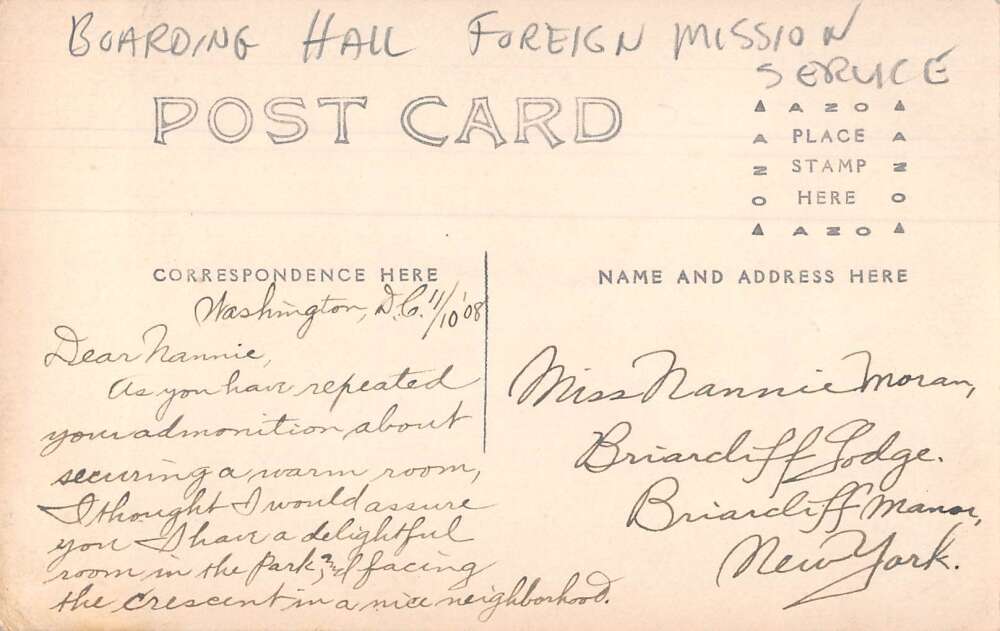 BOARDING HALL FOREIGN MISSION
SERVICE
POST CARD
▲ AZO ▲
A PLACE A
Z STAMP Z
O HERE O
▲ AZO ▲
CORRESPONDENCE HERE
Washington, D.C. 11/10 '08
Dear Nannie,
As you have repeated
your admonition about
securing a warm room,
I thought I would assure
you I have a delightful
room in the Park, and facing
the crescent in a nice neighborhood.
NAME AND ADDRESS HERE
Miss Nannie Moran,
Briarcliff Lodge.
Briarcliff Manor,
New York.